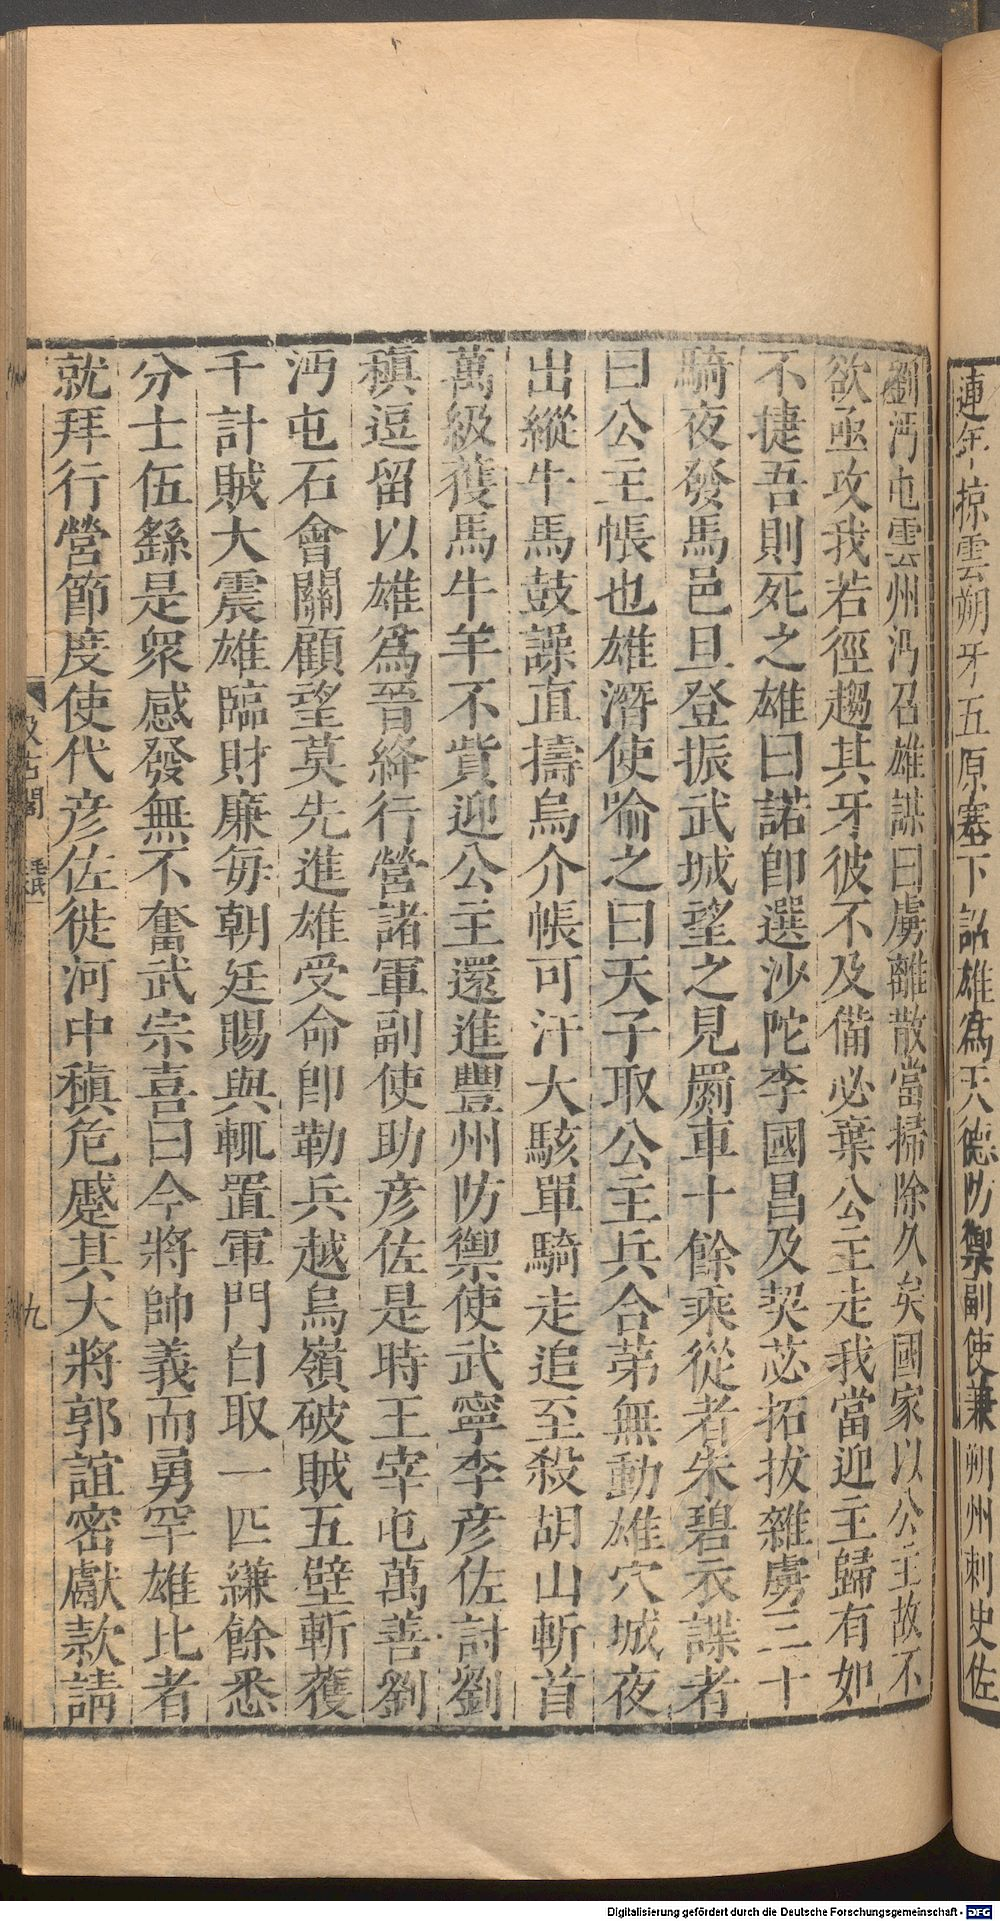 連年掠雲朔牙五原塞下詔雄爲天德防禦副使兼朔州刺史佐
劉沔屯雲州沔召雄謀曰虜離散當掃除久矣國家以公主故不
欲亟攻我若徑趨其牙彼不及備必棄公主走我當迎主歸有如
不捷吾則死之雄曰諾卽選沙陀李國昌及契苾拓拔雜虜三千
騎夜發馬邑旦登振武城望之見罽車十餘乘從者朱碧衣諜者
曰公主帳也雄潛使喻之曰天子取公主兵合第無動雄穴城夜
出縱牛馬鼓譟直擣烏介帳可汗大駭單騎走追至殺胡山斬首
萬級獲馬牛羊不貲迎公主還進豐州防禦使武寧李彥佐討劉
稹逗留以雄爲晉絳行營諸軍副使助彥佐是時王宰屯萬善劉
沔屯石會關顧望莫先進雄受命卽勒兵越烏嶺破賊五壁斬獲
千計賊大震雄臨財廉每朝廷賜與輒置軍門自取一匹縑餘悉
分士伍繇是衆感發無不奮武宗喜曰今將帥義而勇罕雄比者
就拜行營節度使代彥佐徙河中稹危蹙其大將郭誼密獻款請
九
Digitalisierung gefördert durch die Deutsche Forschungsgemeinschaft - DFG